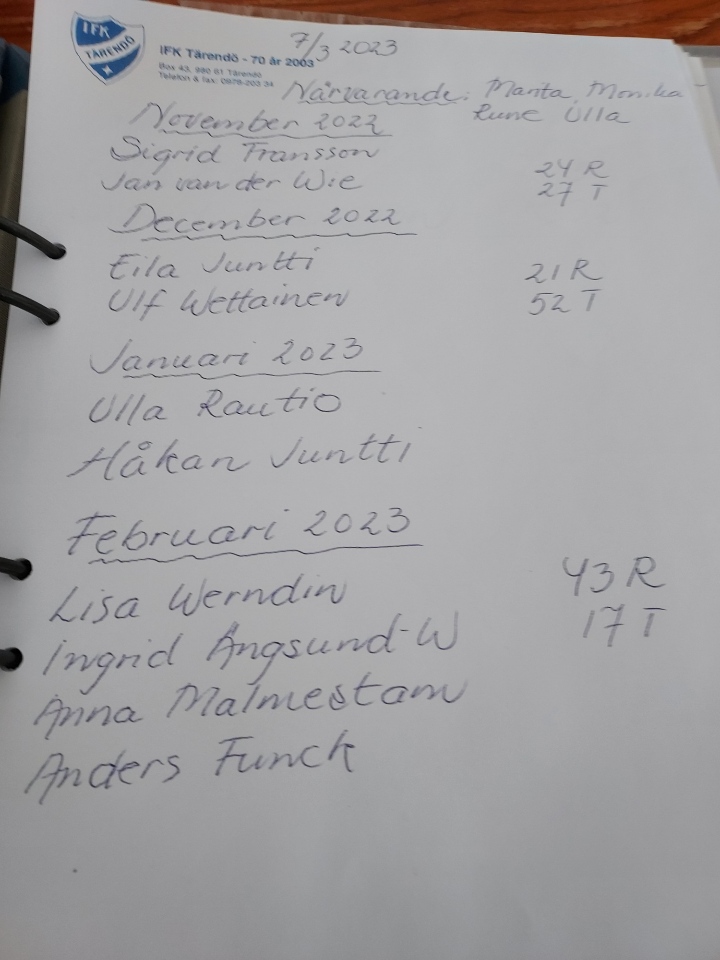 IFK
TÄRENDÖ
7/3 2023
IFK Tärendö - 70 år 2003
Box 43, 980 61 Tärendö
Telefon & fax: 0978-203 34
Närvarande: Marita, Monika
Rune Ulla
November 2022
Sigrid Fransson 24 R
Jan van der Wie 27 T
December 2022
Eila Juntti 21 R
Ulf Wettainen 52 T
Januari 2023
Ulla Rautio
Håkan Juntti
Februari 2023
Lisa Werndin 43 R
Ingrid Ängsund-W 17 T
Anna Malmestam
Anders Funck